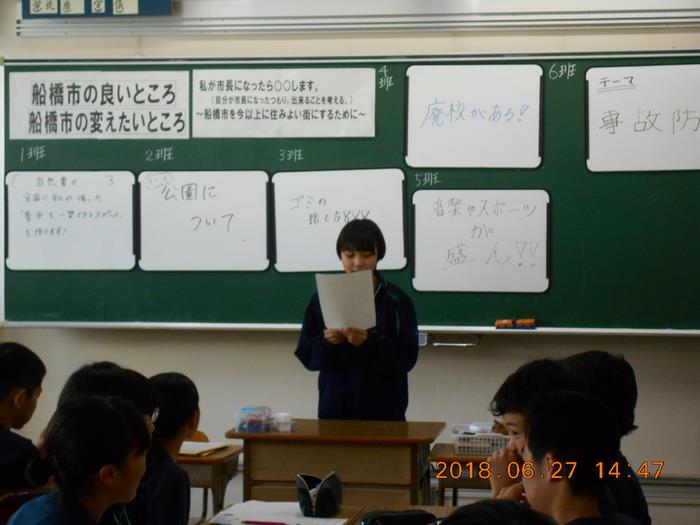 船橋市の良いところ
船橋市の変えたいところ
私が市長になったら○○します。
(自分が市長になったつもり。出来ることを考える。)
~船橋市を今以上に住みよい街にするために~
1班
自然豊か
2班
公園に
ついて
3班
ゴミの
捨て方
4班
廃校がある!
5班
音楽やスポーツ
が
盛ん!!
6班
テーマ
事故防
2018.06.27 14:47